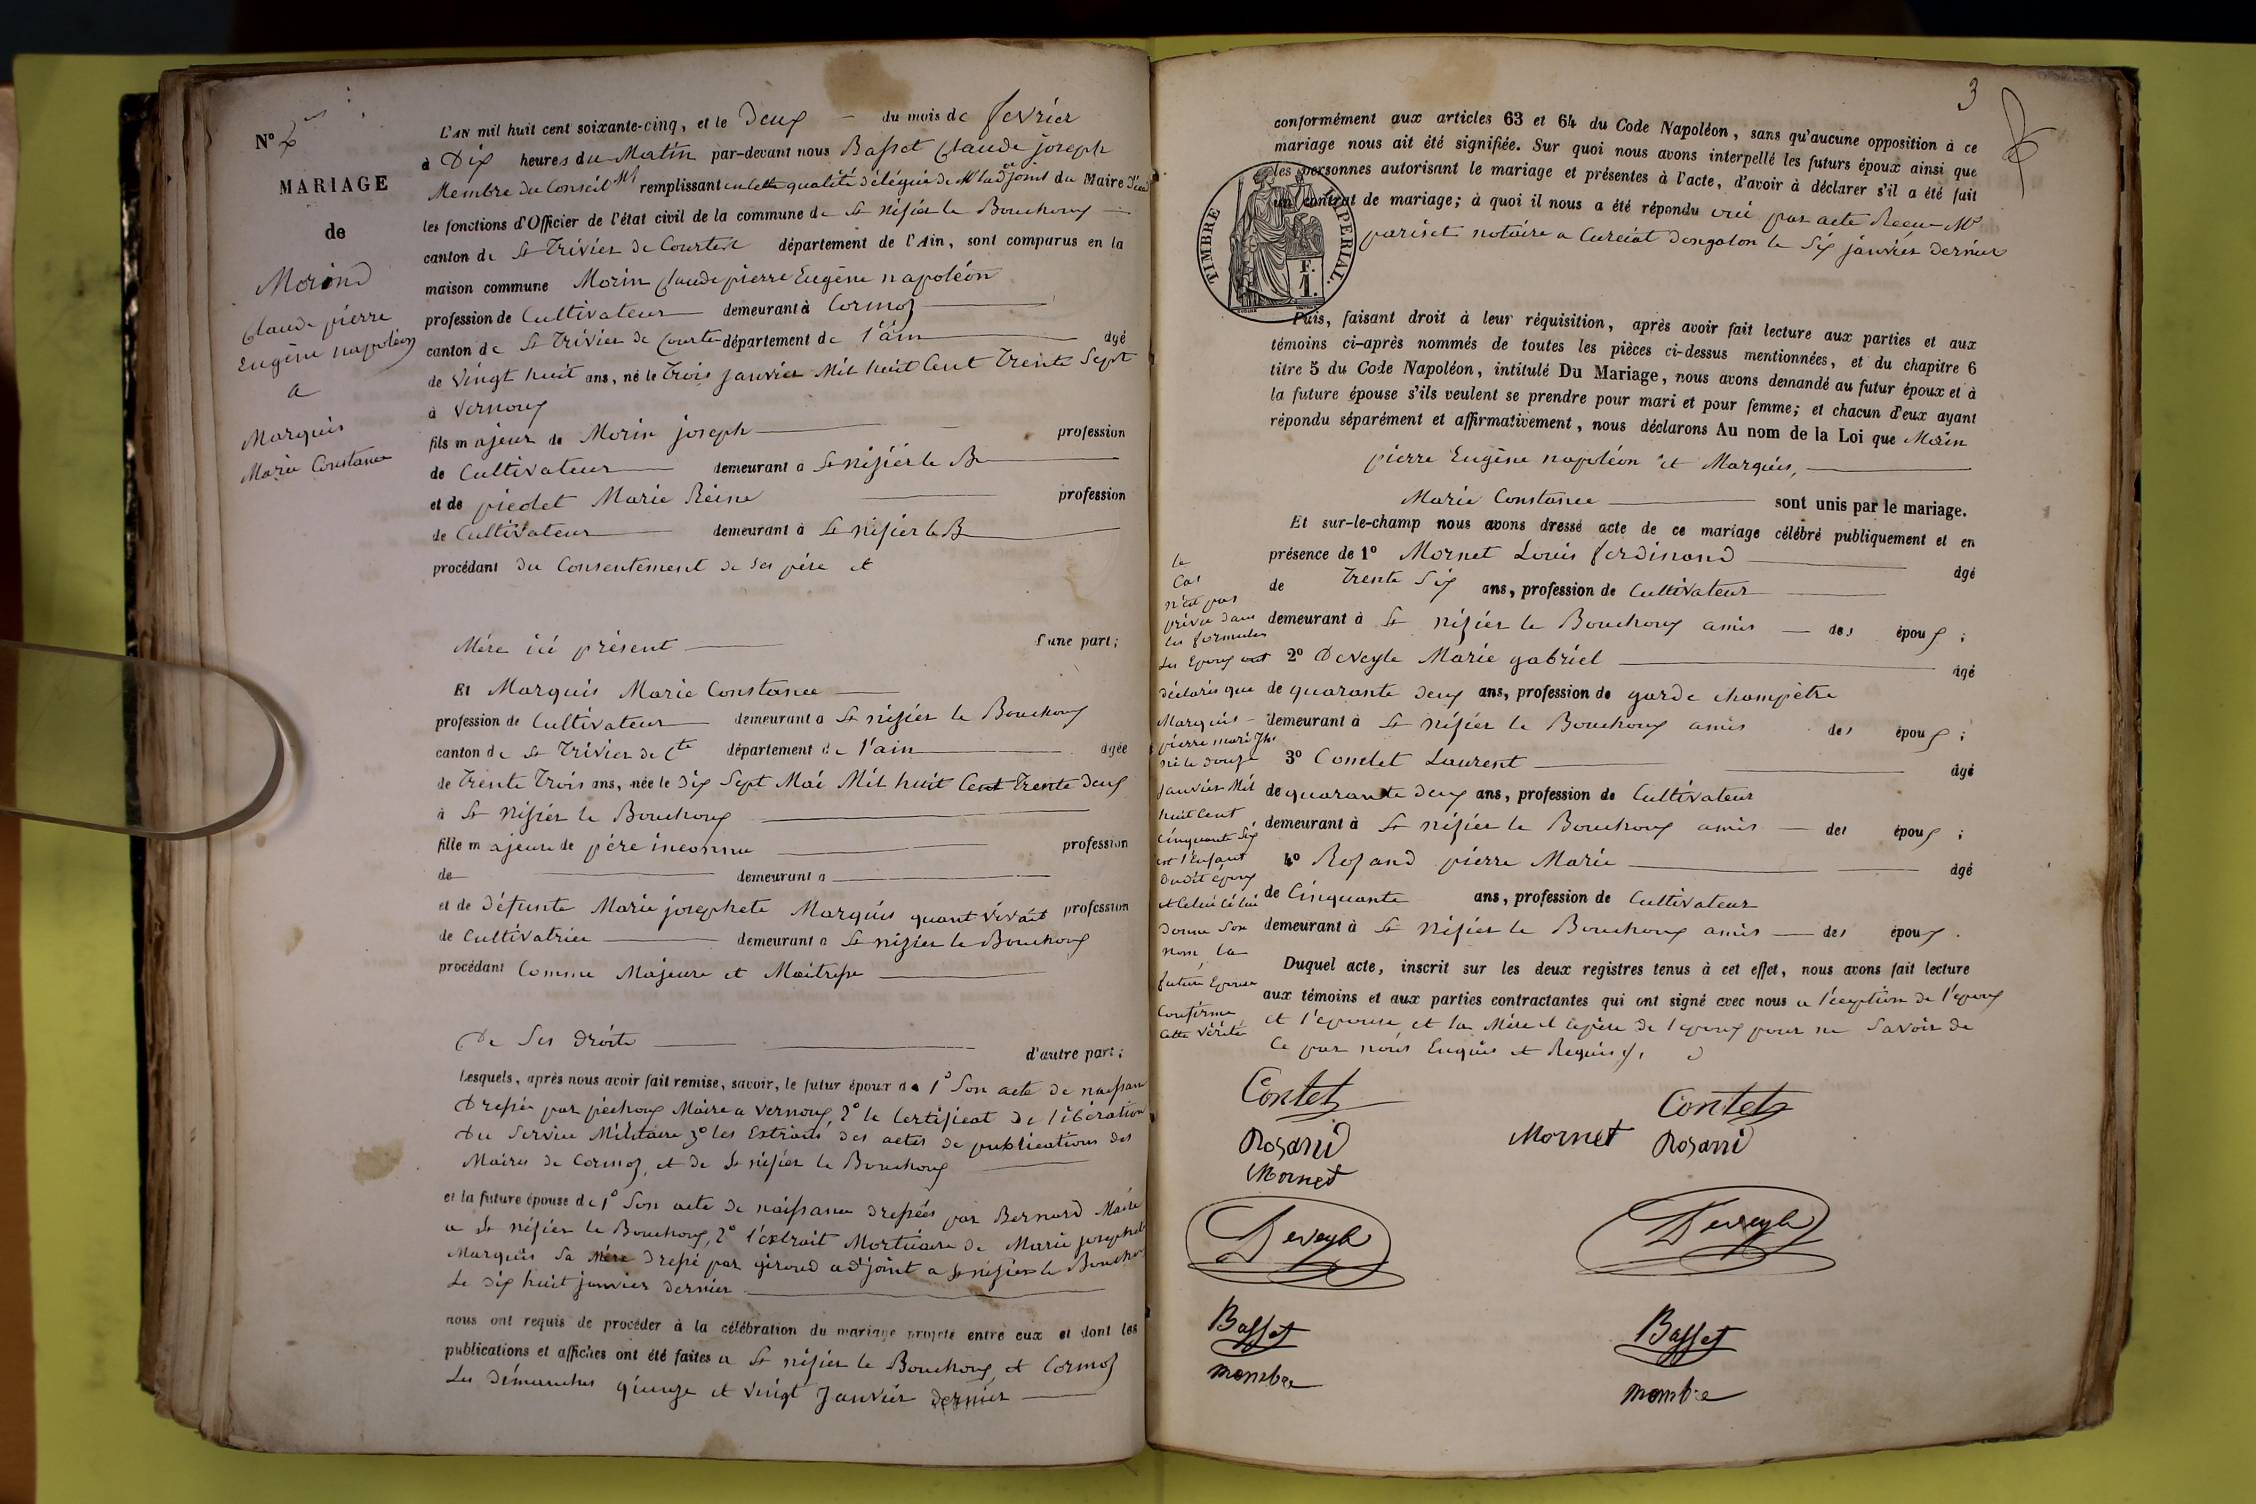 N° 2
MARIAGE
de
Morind
Claude pierre
Eugène napoléon
a
Marquis
Marie Constance
L'AN mil huit cent soixante-cinq, et le Deux du mois de fevrier
à Dix heures du Matin par-devant nous Basset Claude joseph
Membre du Conseil Mal remplissant en Cette qualité délégué de Mr l'adjoint du Maire
les fonctions d'Officier de l'état civil de la commune de St nisier le Bouchoux
canton de St Trivier de Courtes département de l'Ain, sont comparus en la
maison commune Morin Claude pierre Eugène napoléon
profession de Cultivateur demeurant à Cormoz
canton de St Trivier de Courtes département de l'ain âgé
de Vingt huit ans, né le Trois janvier Mil huit Cent Trente Sept
à Vernoux
fils majeur de Morin joseph profession
de Cultivateur demeurant à St nisier le B
et de piedet Marie Reine profession
de Cultivateur demeurant à St nisier le B
procédant du Consentement de ses père et
Mère ici présent d'une part;
Et Marquis Marie Constance
profession de Cultivateur demeurant à St nisier le Bouchoux
canton de St Trivier de Cte département de l'ain agée
de Trente Trois ans, née le Dix Sept Mai Mil huit Cent Trente Deux
à St Nisier le Bouchoux
fille majeure de père inconnu profession
de demeurant à
et de Défunte Marie josephete Marquis quant vivait profession
de Cultivatrice demeurant à St nizier le Bouchoux
procédant Comme Majeure et Maitresse
De Ses droits d'autre part;
Lesquels, après nous avoir fait remise, savoir, le futur époux de 1° Son acte de naissance
Dressé par pechoux Maire a Vernoux, 2° le Certificat de libération
Du Service Militaire 3° les Extraits des actes de publications des
Maires de Cormoz, et de St nisier le Bouchoux
et la future épouse de 1° Son acte de naissance dressés par Bernard Maire
a St nisier le Bouchoux, 2° l'extrait Mortuaire de Marie josephete
Marquis Sa Mère Dressé par giroud adjoint a St nisier le Bouchoux
Le dix huit janvier dernier
nous ont requis de procéder à la célébration du mariage projeté entre eux et dont les
publications et affiches ont été faites a St nisier le Bouchoux, et Cormoz
Les Dimanches quinze et vingt Janvier dernier
3
conformément aux articles 63 et 64 du Code Napoléon, sans qu'aucune opposition à ce
mariage nous ait été signifiée. Sur quoi nous avons interpellé les futurs époux ainsi que
les personnes autorisant le mariage et présentes à l'acte, d'avoir à déclarer s'il a été fait
un contrat de mariage; à quoi il nous a été répondu oui par acte Recu Me
pariset notaire a Curciat Dongalon le Six janvier dernier
TIMBRE IMPERIAL.
F.
1.
Puis, faisant droit à leur réquisition, après avoir fait lecture aux parties et aux
témoins ci-après nommés de toutes les pièces ci-dessus mentionnées, et du chapitre 6
titre 5 du Code Napoléon, intitulé Du Mariage, nous avons demandé au futur époux et à
la future épouse s'ils veulent se prendre pour mari et pour femme; et chacun d'eux ayant
répondu séparément et affirmativement, nous déclarons Au nom de la Loi que Morin
pierre Eugène napoléon et Marquis,
Marie Constance sont unis par le mariage.
Et sur-le-champ nous avons dressé acte de ce mariage célébré publiquement et en
présence de 1° Mornet Louis ferdinand âgé
de Trente Six ans, profession de Cultivateur
demeurant à St nisier le Bouchoux amis des époux;
2° Deveyle Marie gabriel âgé
de quarante deux ans, profession de garde champêtre
demeurant à St Nisier le Bouchoux amis des époux;
3° Contet Laurent âgé
de quarante deux ans, profession de Cultivateur
demeurant à St nisier le Bouchoux amis des époux;
4° Rosand pierre Marie âgé
de Cinquante ans, profession de Cultivateur
demeurant à St Nisier le Bouchoux amis des époux.
Duquel acte, inscrit sur les deux registres tenus à cet effet, nous avons fait lecture
aux témoins et aux parties contractantes qui ont signé avec nous a l'éxception de l'epoux
et l'epouse et la Mère et le père de l'epoux pour ne Savoir de
Ce par nous Enquis et Requis
le
Cas
n'est pas
prévu dans
les formules
Les Epoux ont
déclarés que
Marquis
pierre marie Jh
né le douze
janvier Mil
huit Cent
Cinquante Six
est l'Enfant
dudit époux
et Celui Ci lui
donne Son
nom, la
future Epouse
Confirme
Cette Vérité
Contet Contet
Rosand Mornet Rosand
Mornet
Deveyle Deveyle
Basset Basset
membre membre